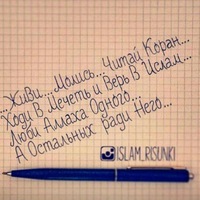 ...Живи... Молись... Читай Коран...
Ходи В Мечеть и Верь В Ислам...
Люби Аллаха Одного...
А Остальных ради Него...
ISLAM_RISUNKI